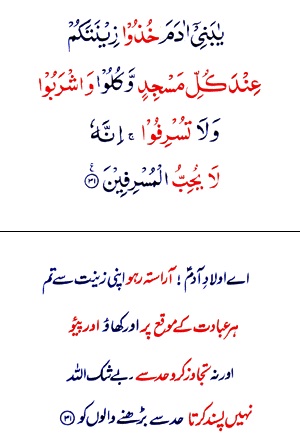 يٰبَنِيْٓ اٰدَمَ خُذُوْا زِيْنَتَكُمْ
عِنْدَ كُلِّ مَسْجِدٍ وَّكُلُوْا وَاشْرَبُوْا
وَلَا تُسْرِفُوْا ۚ اِنَّهٗ
لَا يُحِبُّ الْمُسْرِفِيْنَ ﴿۳۱﴾ ع
اے اولادِ آدمؑ ! آراستہ رہو اپنی زینت سے تم
ہر عبادت کے موقع پر اور کھاؤ اور پیئو
اور نہ تجاوز کرو حد سے۔ بے شک اللہ
نہیں پسند کرتا حد سے بڑھنے والوں کو ﴿۳۱﴾